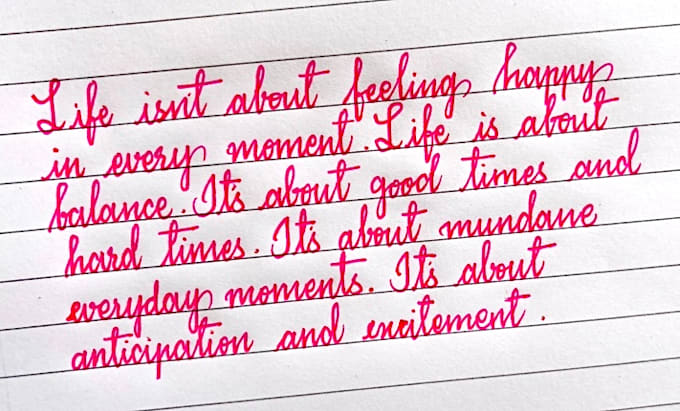 Life isn't about feeling happy
in every moment. Life is about
balance. It's about good times and
hard times. It's about mundane
everyday moments. It's about
anticipation and excitement.